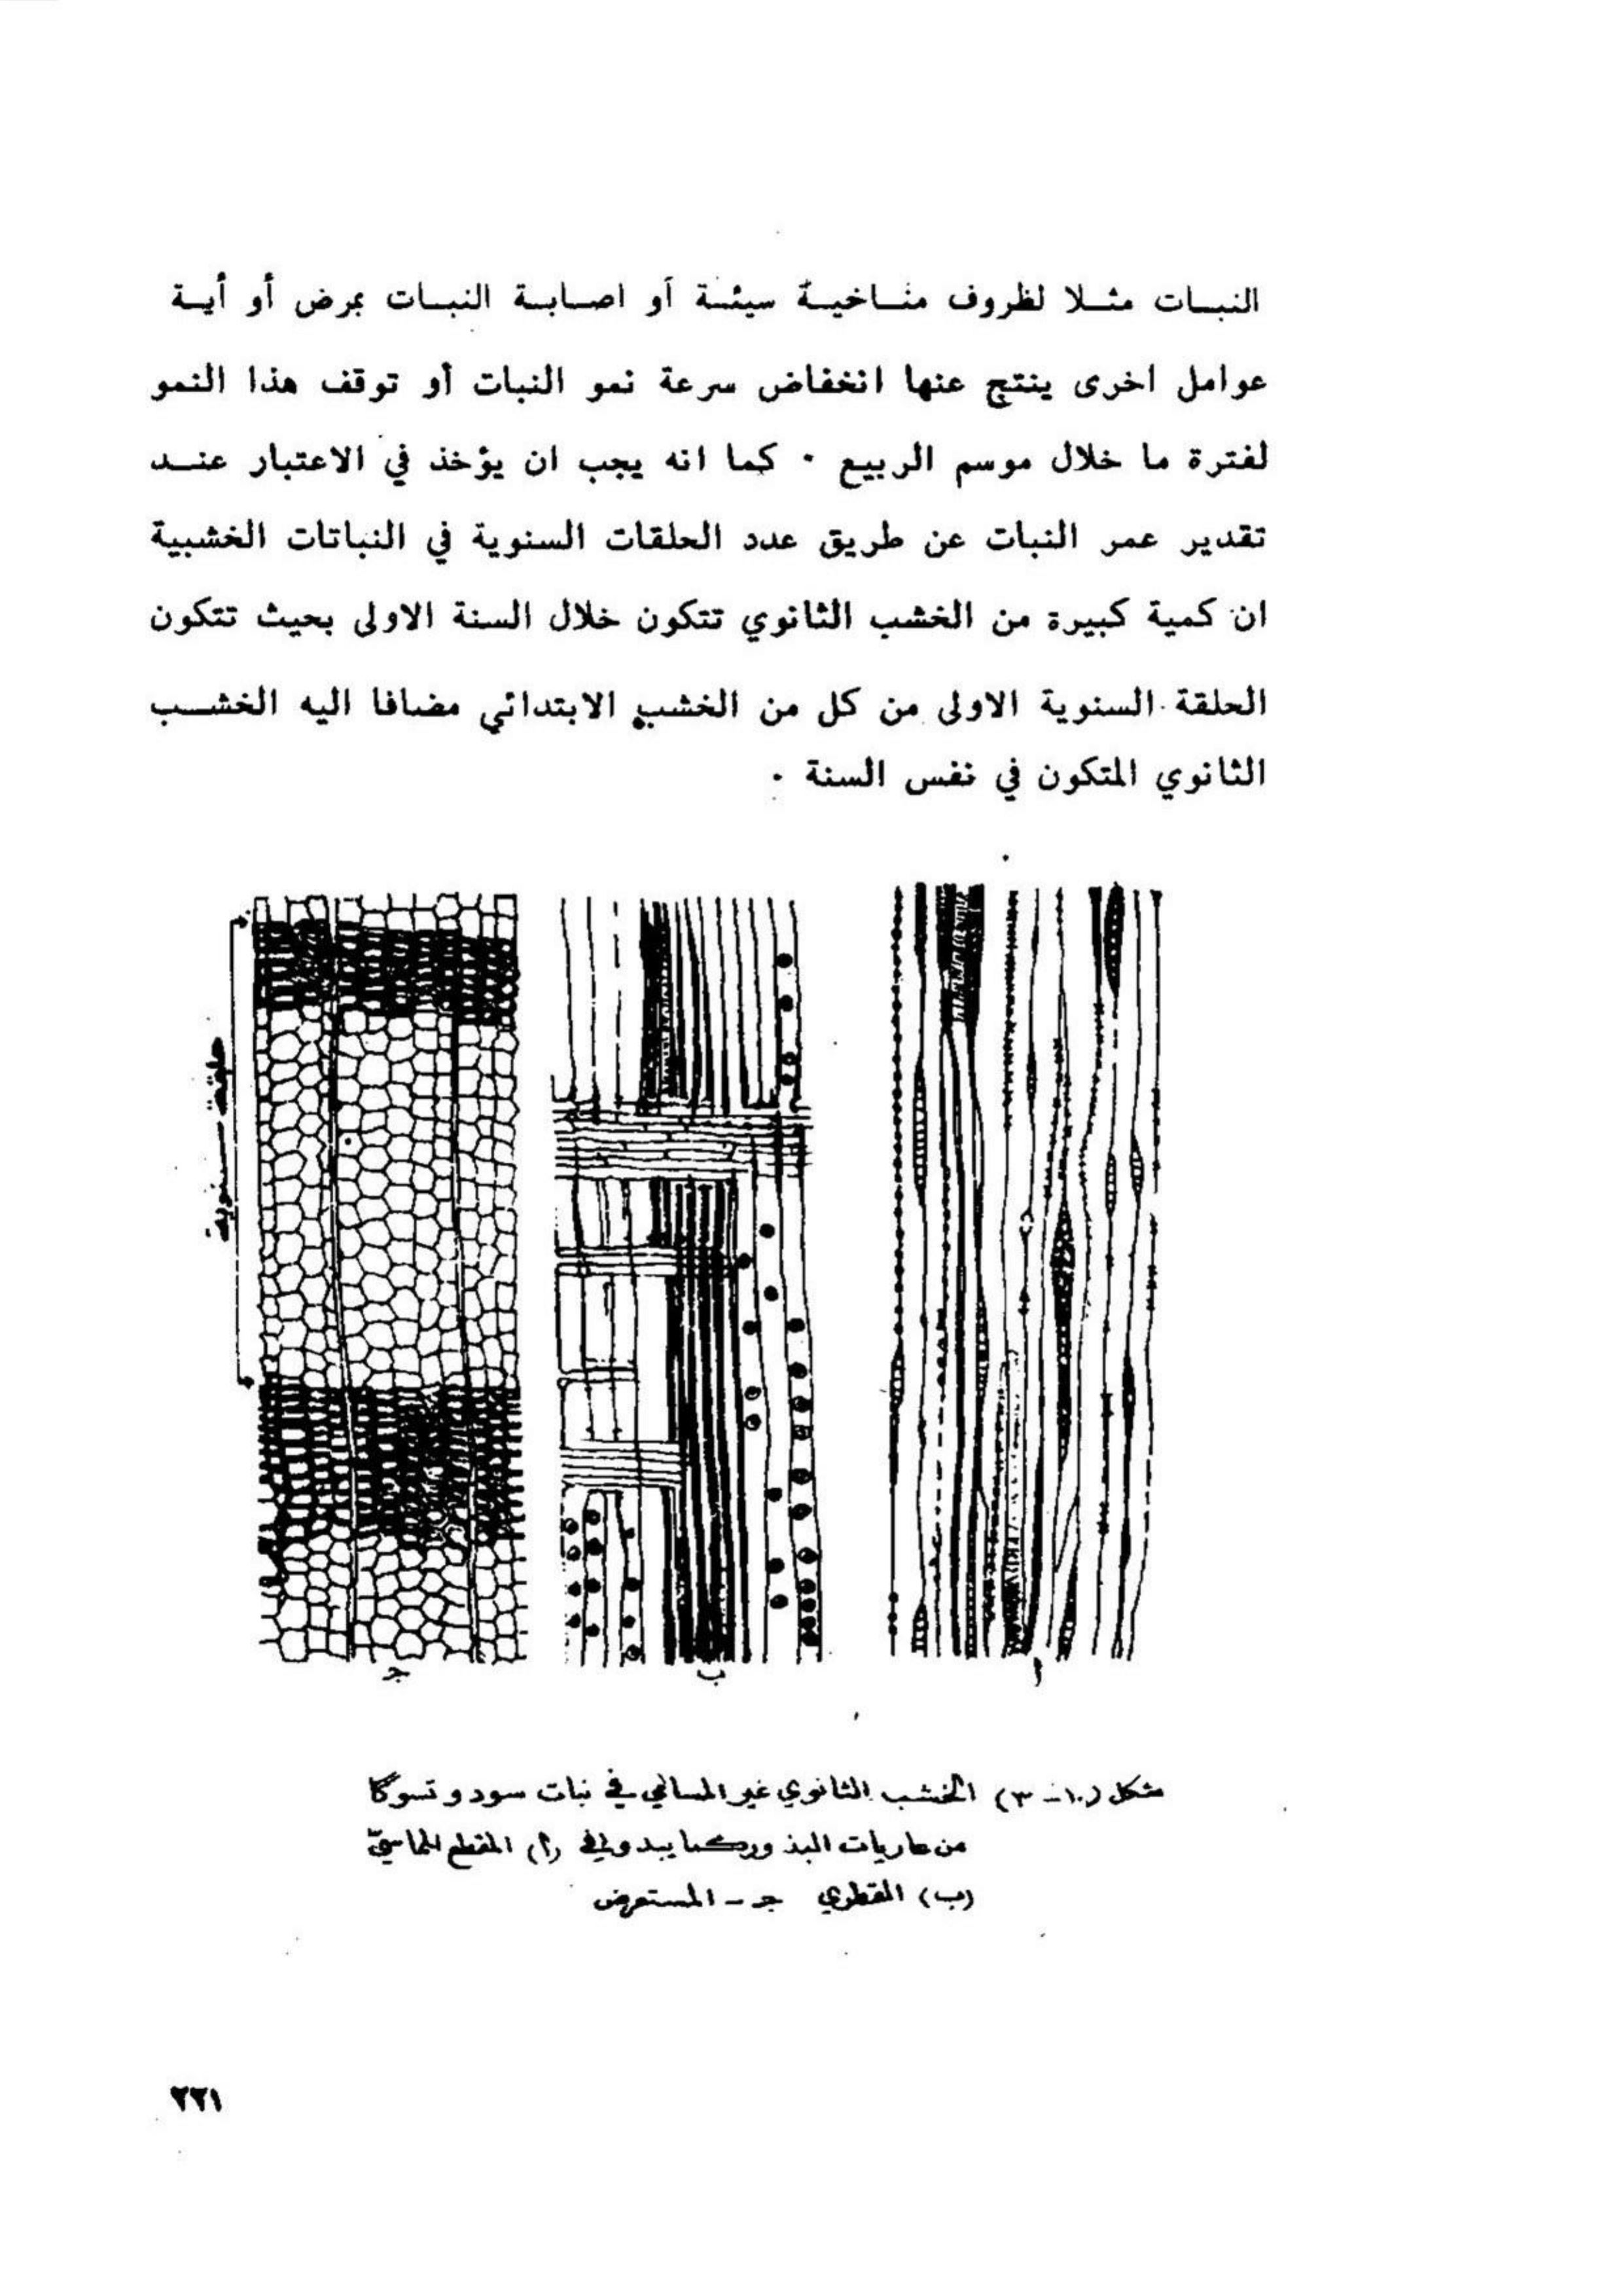 النبات مثلا لظروف مناخية سيئة أو اصابة النبات بمرض أو أية
عوامل اخرى ينتج عنها انخفاض سرعة نمو النبات أو توقف هذا النمو
لفترة ما خلال موسم الربيع ٠ كما انه يجب ان يؤخذ في الاعتبار عند
تقدير عمر النبات عن طريق عدد الحلقات السنوية في النباتات الخشبية
ان كمية كبيرة من الخشب الثانوي تتكون خلال السنة الاولى بحيث تتكون
الحلقة السنوية الاولى من كل من الخشب الابتدائي مضافا اليه الخشب
الثانوي المتكون في نفس السنة ٠
حلقة سنوية
أ
ب
جـ
شكل (١٠ - ٣) الخشب الثانوي غير المسامي في نبات سودوتسوگا
من عاريات البذور كما يبدو في (أ) المقطع المماسيّ
(ب) القطري جـ - المستعرض
٢٢١